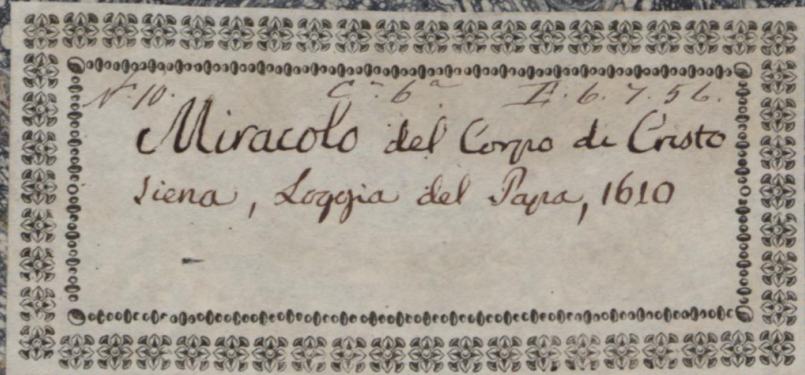 N. 10. Cª. 6ª E. 6. 7. 56.
Miracolo del Corpo di Cristo
Siena, Loggia del Papa, 1610